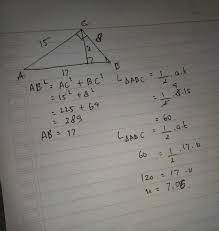 C
15
8
A
17
B
AB² = AC² + BC²
= 15² + 8²
= 225 + 64
= 289
AB = 17
L△ABC = 1/2 . a.t
= 1/2 . 8.15
= 60
L△ABC = 1/2 . a.t
60 = 1/2 . 17 . x
120 = 17 . x
x = 7,05